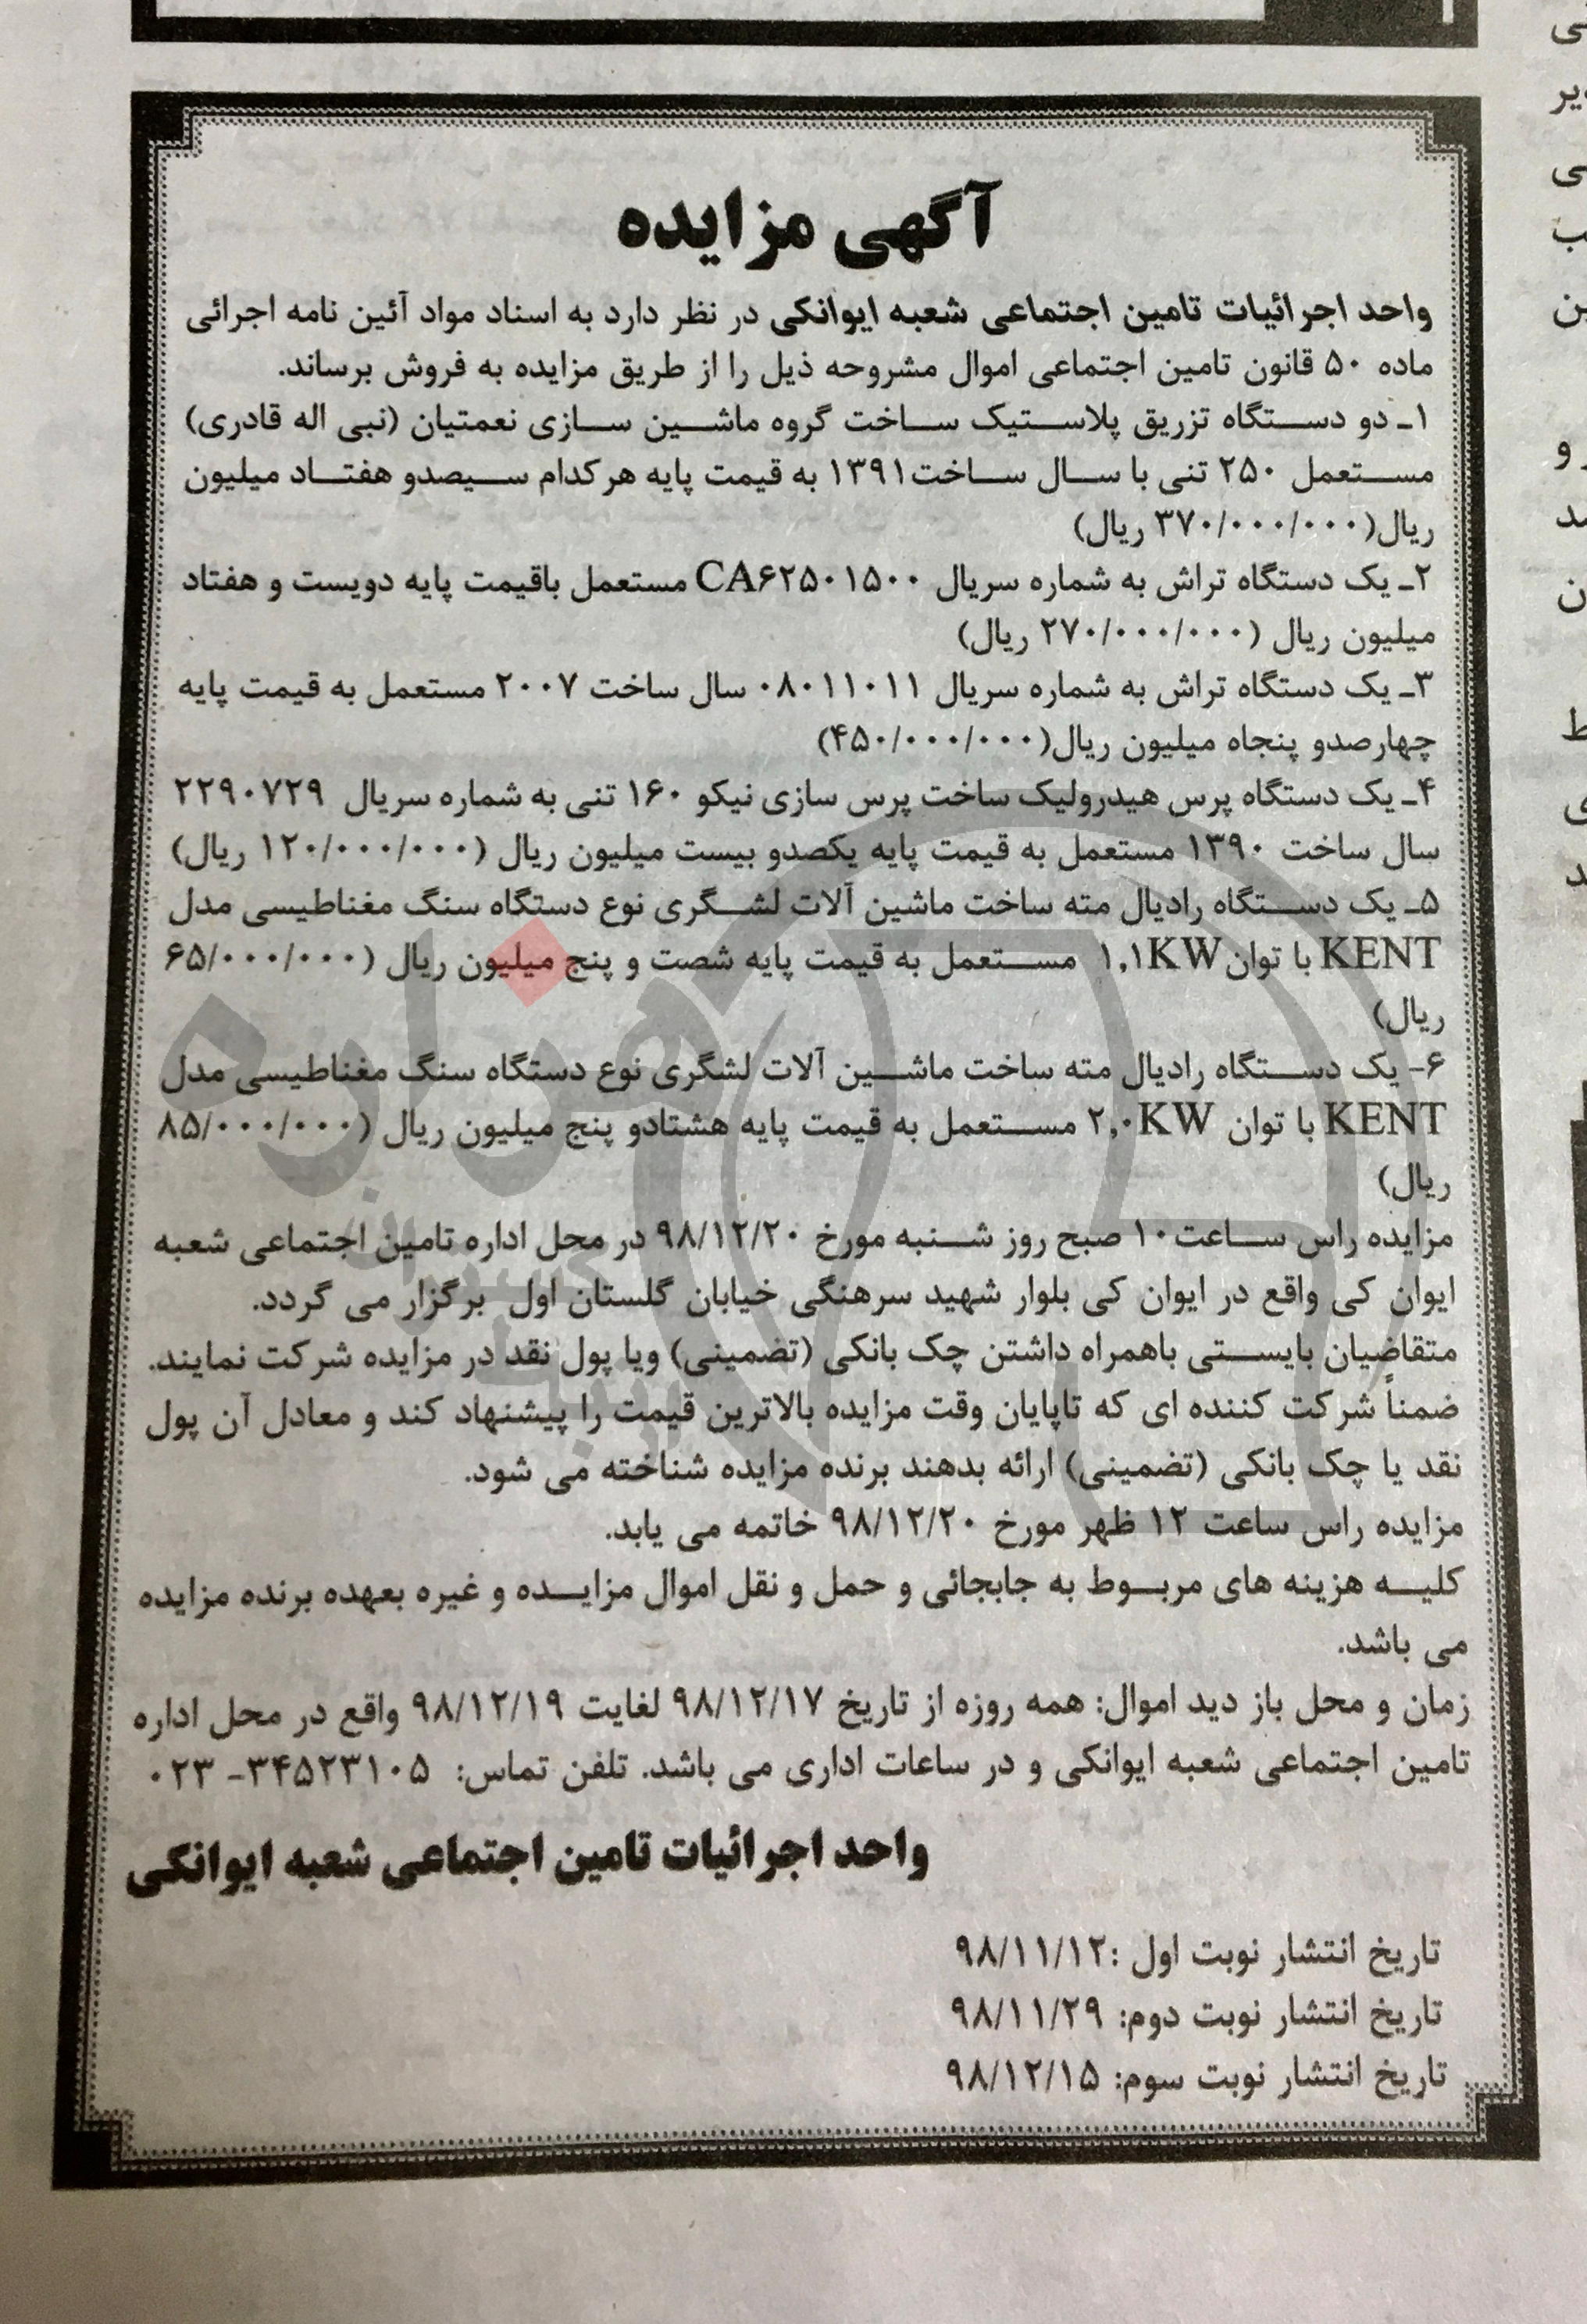 آگهی مزایده
واحد اجرائیات تامین اجتماعی شعبه ایوانکی در نظر دارد به اسناد مواد آئین نامه اجرائی
ماده ۵۰ قانون تامین اجتماعی اموال مشروحه ذیل را از طریق مزایده به فروش برساند.
۱ـ دو دستگاه تزریق پلاستیک ساخت گروه ماشین سازی نعمتیان (نبی اله قادری)
مستعمل ۲۵۰ تنی با سال ساخت۱۳۹۱ به قیمت پایه هرکدام سیصدو هفتاد میلیون
ریال(۳۷۰/۰۰۰/۰۰۰ ریال)
۲ـ یک دستگاه تراش به شماره سریال CA۶۲۵۰۱۵۰۰ مستعمل باقیمت پایه دویست و هفتاد
میلیون ریال (۲۷۰/۰۰۰/۰۰۰ ریال)
۳ـ یک دستگاه تراش به شماره سریال ۰۸۰۱۱۰۱۱ سال ساخت ۲۰۰۷ مستعمل به قیمت پایه
چهارصدو پنجاه میلیون ریال(۴۵۰/۰۰۰/۰۰۰)
۴ـ یک دستگاه پرس هیدرولیک ساخت پرس سازی نیکو ۱۶۰ تنی به شماره سریال ۲۲۹۰۷۲۹
سال ساخت ۱۳۹۰ مستعمل به قیمت پایه یکصدو بیست میلیون ریال (۱۲۰/۰۰۰/۰۰۰ ریال)
۵ـ یک دستگاه رادیال مته ساخت ماشین آلات لشگری نوع دستگاه سنگ مغناطیسی مدل
KENT با توان۱,۱KW مستعمل به قیمت پایه شصت و پنج میلیون ریال (۶۵/۰۰۰/۰۰۰
ریال)
۶- یک دستگاه رادیال مته ساخت ماشین آلات لشگری نوع دستگاه سنگ مغناطیسی مدل
KENT با توان ۲,۰KW مستعمل به قیمت پایه هشتادو پنج میلیون ریال (۸۵/۰۰۰/۰۰۰
ریال)
مزایده راس ساعت۱۰ صبح روز شنبه مورخ ۹۸/۱۲/۲۰ در محل اداره تامین اجتماعی شعبه
ایوان کی واقع در ایوان کی بلوار شهید سرهنگی خیابان گلستان اول برگزار می گردد.
متقاضیان بایستی باهمراه داشتن چک بانکی (تضمینی) ویا پول نقد در مزایده شرکت نمایند.
ضمناً شرکت کننده ای که تاپایان وقت مزایده بالاترین قیمت را پیشنهاد کند و معادل آن پول
نقد یا چک بانکی (تضمینی) ارائه بدهند برنده مزایده شناخته می شود.
مزایده راس ساعت ۱۲ ظهر مورخ ۹۸/۱۲/۲۰ خاتمه می یابد.
کلیه هزینه های مربوط به جابجائی و حمل و نقل اموال مزایده و غیره بعهده برنده مزایده
می باشد.
زمان و محل باز دید اموال: همه روزه از تاریخ ۹۸/۱۲/۱۷ لغایت ۹۸/۱۲/۱۹ واقع در محل اداره
تامین اجتماعی شعبه ایوانکی و در ساعات اداری می باشد. تلفن تماس: ۳۴۵۲۳۱۰۵- ۰۲۳
واحد اجرائیات تامین اجتماعی شعبه ایوانکی
تاریخ انتشار نوبت اول :۹۸/۱۱/۱۲
تاریخ انتشار نوبت دوم: ۹۸/۱۱/۲۹
تاریخ انتشار نوبت سوم: ۹۸/۱۲/۱۵
هزاره